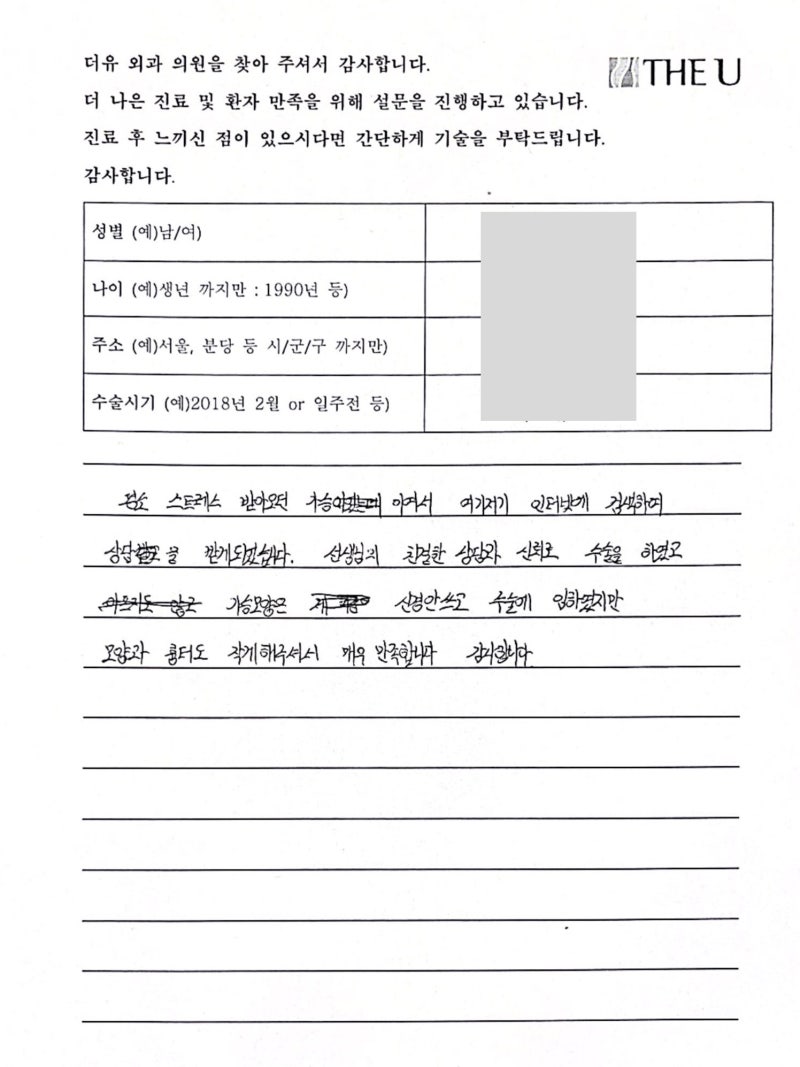 더유 외과 의원을 찾아 주셔서 감사합니다.
THE U
더 나은 진료 및 환자 만족을 위해 설문을 진행하고 있습니다.
진료 후 느끼신 점이 있으시다면 간단하게 기술을 부탁드립니다.
감사합니다.
성별 (예)남/여)
나이 (예)생년 까지만 : 1990년 등)
주소 (예)서울, 분당 등 시/군/구 까지만)
수술시기 (예)2018년 2월 or 일주전 등)
평소 스트레스 받아오던 가슴 여기저기 인터넷에 검색하여
상담을 받게되었습니다. 선생님의 친절한 상담과 신뢰로 수술을 하였고
가슴모양은 신경안쓰고 수술에 임하였지만
모양과 흉터도 작게해주셔서 매우 만족합니다 감사합니다